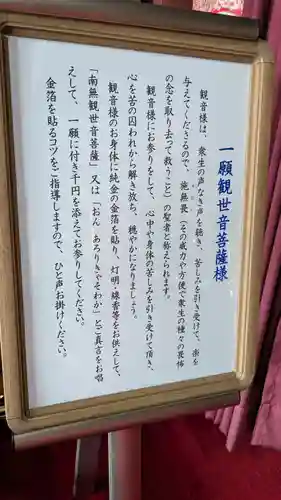 一願観世音菩薩様
観音様は、衆生の声なき声を聴き、苦しみを引き受けて、楽を
与えてくださるので、施無畏（その威力や方便で衆生の種々の畏怖
の念を取り去って救うこと）の聖者と称えられます。
観音様にお参りをして、心中や身体の苦しみを引き受けて頂き、
心を苦の囚われから解き放ち、穏やかになりましょう。
観音様のお身体に純金の金箔を貼り、灯明・線香等をお供えして、
「南無観世音菩薩」又は「おん あろりきゃそわか」とご真言をお唱
えして、一願に付き千円を添えてお参りしてください。
金箔を貼るコツをご指導しますので、ひと声お掛けください。